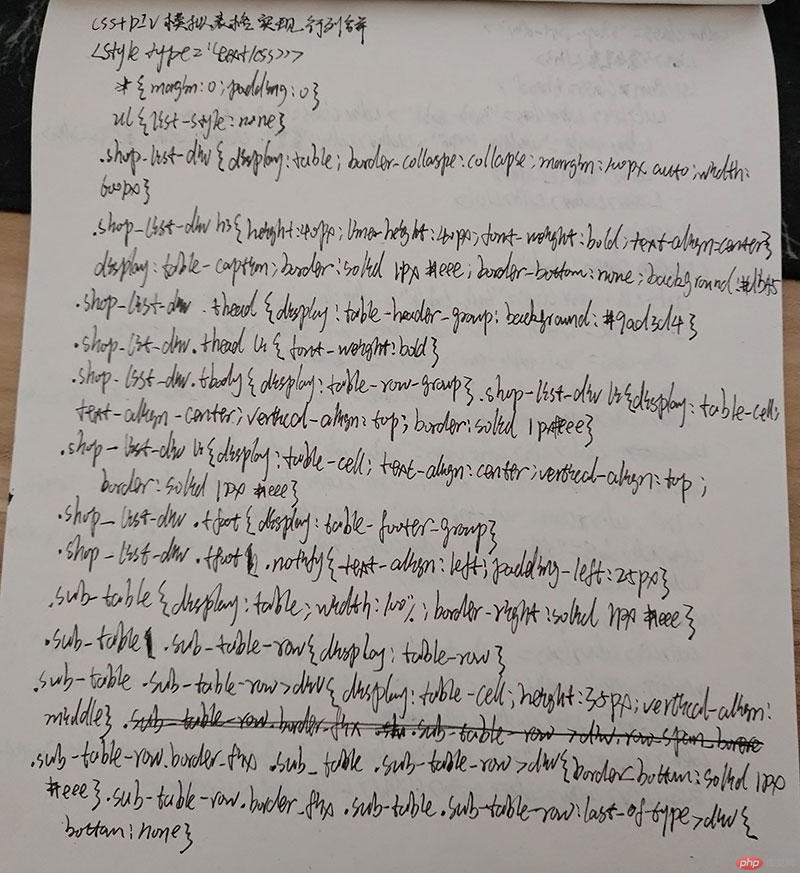 css+DIV模拟表格实现行列合并
<style type="text/css">
*{margin:0;padding:0}
ul{list-style:none}
.shop-list-div{display:table; border-collaspe:collapse; margin:100px auto;width:
600px}
.shop-list-div h3{height:40px;line-height:40px;font-weight:bold;text-align=center}
display:table-caption;border:solid 1px #eee;border-bottom:none;background:#db45
.shop-list-div .thead{display:table-header-group:background:#9ad3d4}
.shop-list-div.thead li{font-weight:bold}
.shop-list-div.tbody{display:table-row-group}.shop-list-div li{display:table-cell;
text-align-center;vertical-align:top;border:solid 1px#eee}
.shop-list-div li{display:table-cell;text-align:center;vertical-align:top;
border:solid 1px #eee}
.shop_list-div .tfoot{display:table-footer-group}
.shop-list-div .tfoot .notify{text-align:left;padding-left:25px}
.sub-table{display:table;width:100%;border-right:solid 1px #eee}
.sub-table .sub-table-row{display:table-row}
.sub-table .sub-table-row>div{display:table-cell;height:35px;vertical-align:
middle} .sub-table-row.border_fix .sub-table-row>div.row-span
.sub-table-row.border_fix .sub_table .sub-table-row>div{border-bottom:solid 1px
#eee}.sub-table-row.border_fix .sub-table.sub-table-row:last-of-type>div{
bottom:none}
php